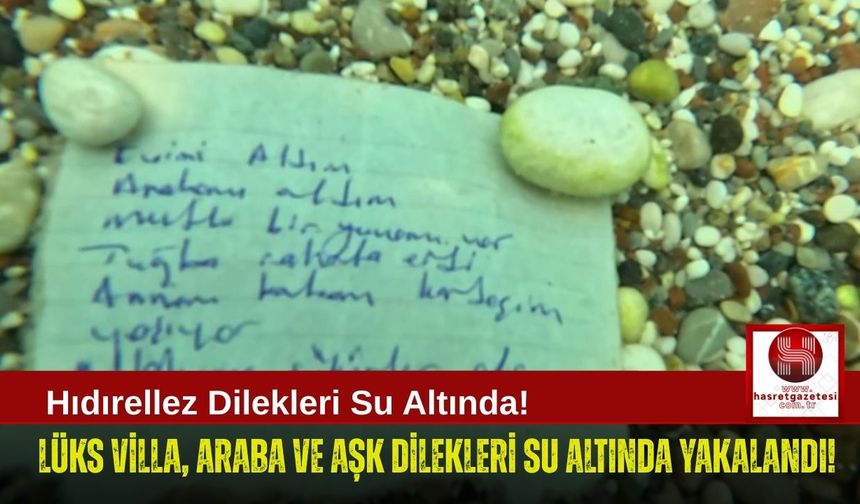 Evimi Aldım
Arabamı aldım
mutlu bir yuvamız var
Tuğba rahata erdi
Annem babam kardeşim
www.
hasretgazetesi
.com.tr
Hıdırellez Dilekleri Su Altında!
LÜKS VİLLA, ARABA VE AŞK DİLEKLERİ SU ALTINDA YAKALANDI!